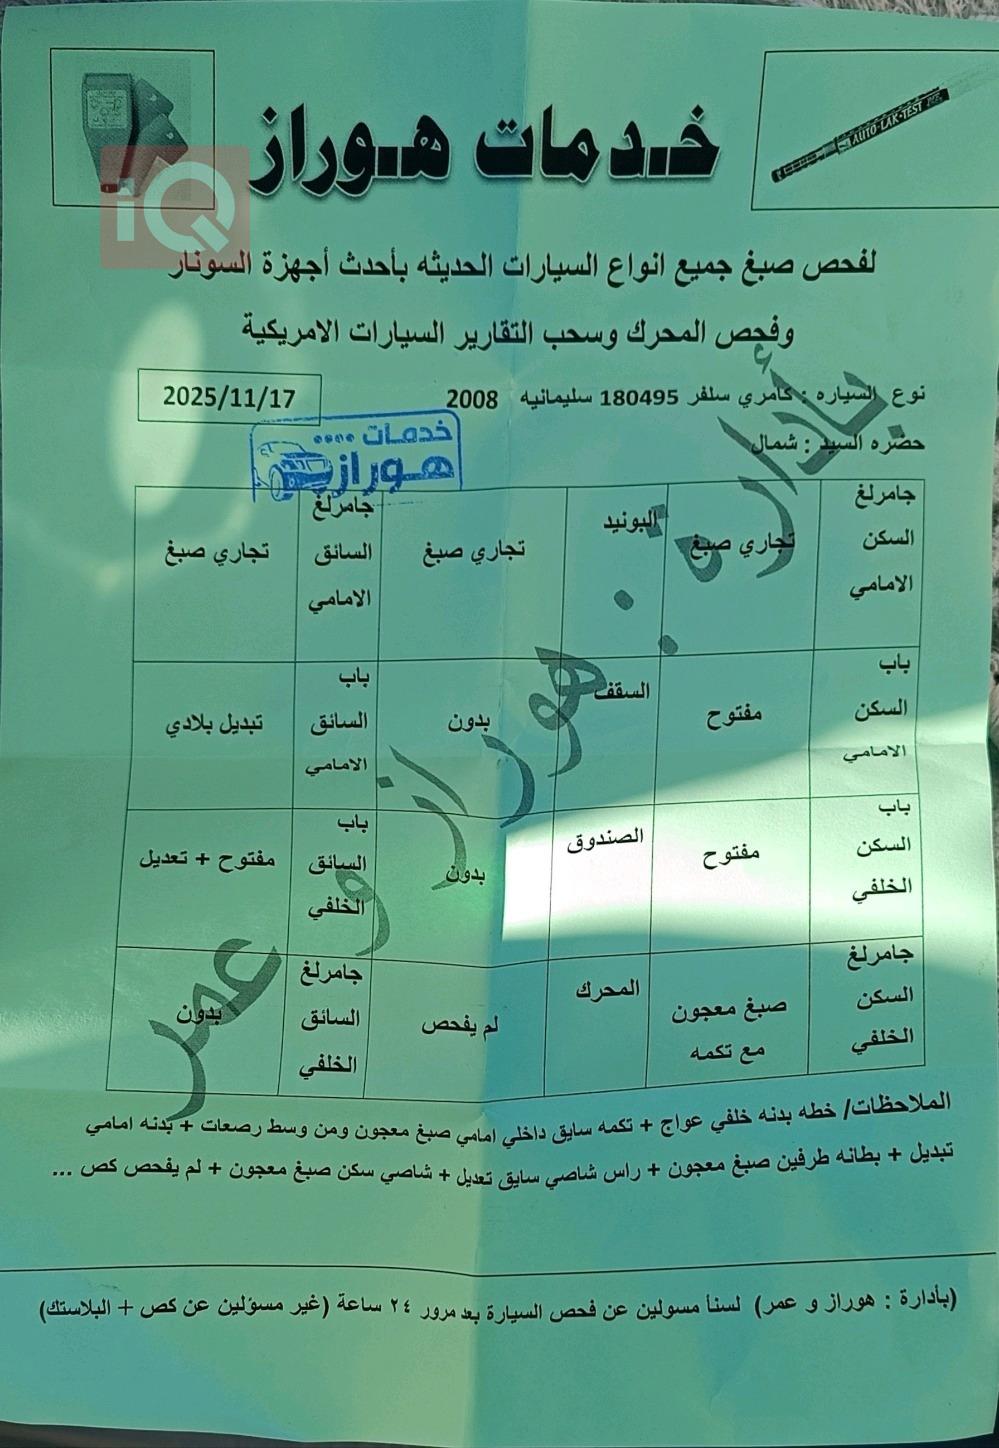 خدمات هوراز
AUTO-LAK-TEST
iQ
لفحص صبغ جميع انواع السيارات الحديثه بأحدث أجهزة السونار
وفحص المحرك وسحب التقارير السيارات الامريكية
نوع السياره : كامري سلفر 180495 سليمانيه 2008
2025/11/17
حضره السيد : شمال
خدمات ....
هوراز
جامرلغ السكن الامامي
تجاري صبغ
البونيد
تجاري صبغ
جامرلغ السائق الامامي
تجاري صبغ
باب السكن الامامي
مفتوح
السقف
بدون
باب السائق الامامي
تبديل بلادي
باب السكن الخلفي
مفتوح
الصندوق
بدون
باب السائق الخلفي
مفتوح + تعديل
جامرلغ السكن الخلفي
صبغ معجون مع تكمه
المحرك
لم يفحص
جامرلغ السائق الخلفي
بدون
بأدارة : هوراز و عمر
الملاحظات/ خطه بدنه خلفي عواج + تكمه سايق داخلي امامي صبغ معجون ومن وسط رصعات + بدنه امامي
تبديل + بطانه طرفين صبغ معجون + راس شاصي سايق تعديل + شاصي سكن صبغ معجون + لم يفحص كص ...
(بأدارة : هوراز و عمر) لسنأ مسولين عن فحص السيارة بعد مرور ٢٤ ساعة (غير مسؤلين عن كص + البلاستك)